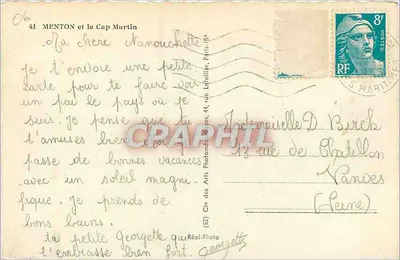 06
41 MENTON et le Cap Martin
Ma chère Nanouchette
je t'envoie une petite
carte pour te faire voir
un peu le pays où je
suis. Je pense que tu
t'amuses bien
passe de bonnes vacances
avec un soleil magni
fique. Je prends de
bons bains.
ta petite Georgette qui
t'embrasse bien fort.
Georgette
Réal-Photo
(52) Cie des Arts Photomé 44, rue Letellier, Paris-15e
CPRPHIL
8F
POSTES
RF
MARITIMES
Mademoiselle D. Birck
13 rue de Chatillon
Vanves
(Seine)